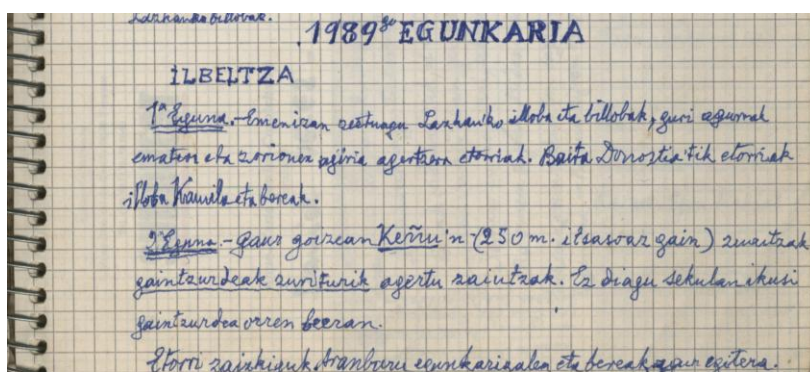 Lazkauko billobak.
1989go EGUNKARIA
ILBELTZA
1ª Eguna.- Emen izan zestuagu Lazkauko illoba eta billobak, guri agurrak
ematen eta zorionez agiria agertzera etorriak. Baita Donostia'tik etorriak
illoba Kamila eta bereak.
2ª Eguna.- Gaur goizean Keñu'n (250 m. itsasoaz gain) zuaitzak
gaintzurdeak zuriturik agertu zaiutzak. Ez diagu sekulan ikusi
gaintzurdea orren beeran.
Etorri zaizkiguk Aranburu egunkarizalea eta bereak agur egitera.